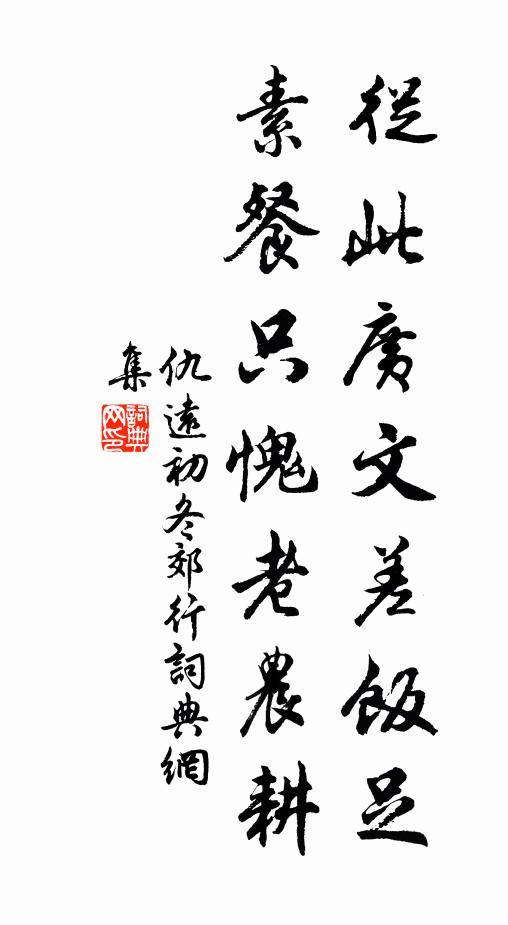 從此廣文差飯足
素餐只愧老農耕
仇遠初冬郊行詞典網
集
詞典网印